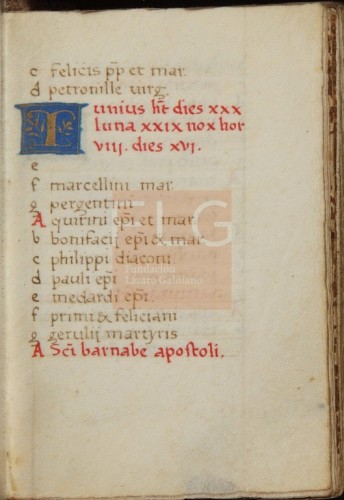 c felicis pp et mar.
d petronille virg.
Iunius ht dies xxx
luna xxix nox hor
viij. dies xvi.
e
f marcellini mar.
g pergentini
A quirini epi et mar.
b bonifacij epi & mar.
c philippi diaconi
d pauli epi
e medardi epi
f primi & feliciani
g gerulij martyris
A Sci barnabe apostoli.
FLG
Fundación
Lázaro Galdiano